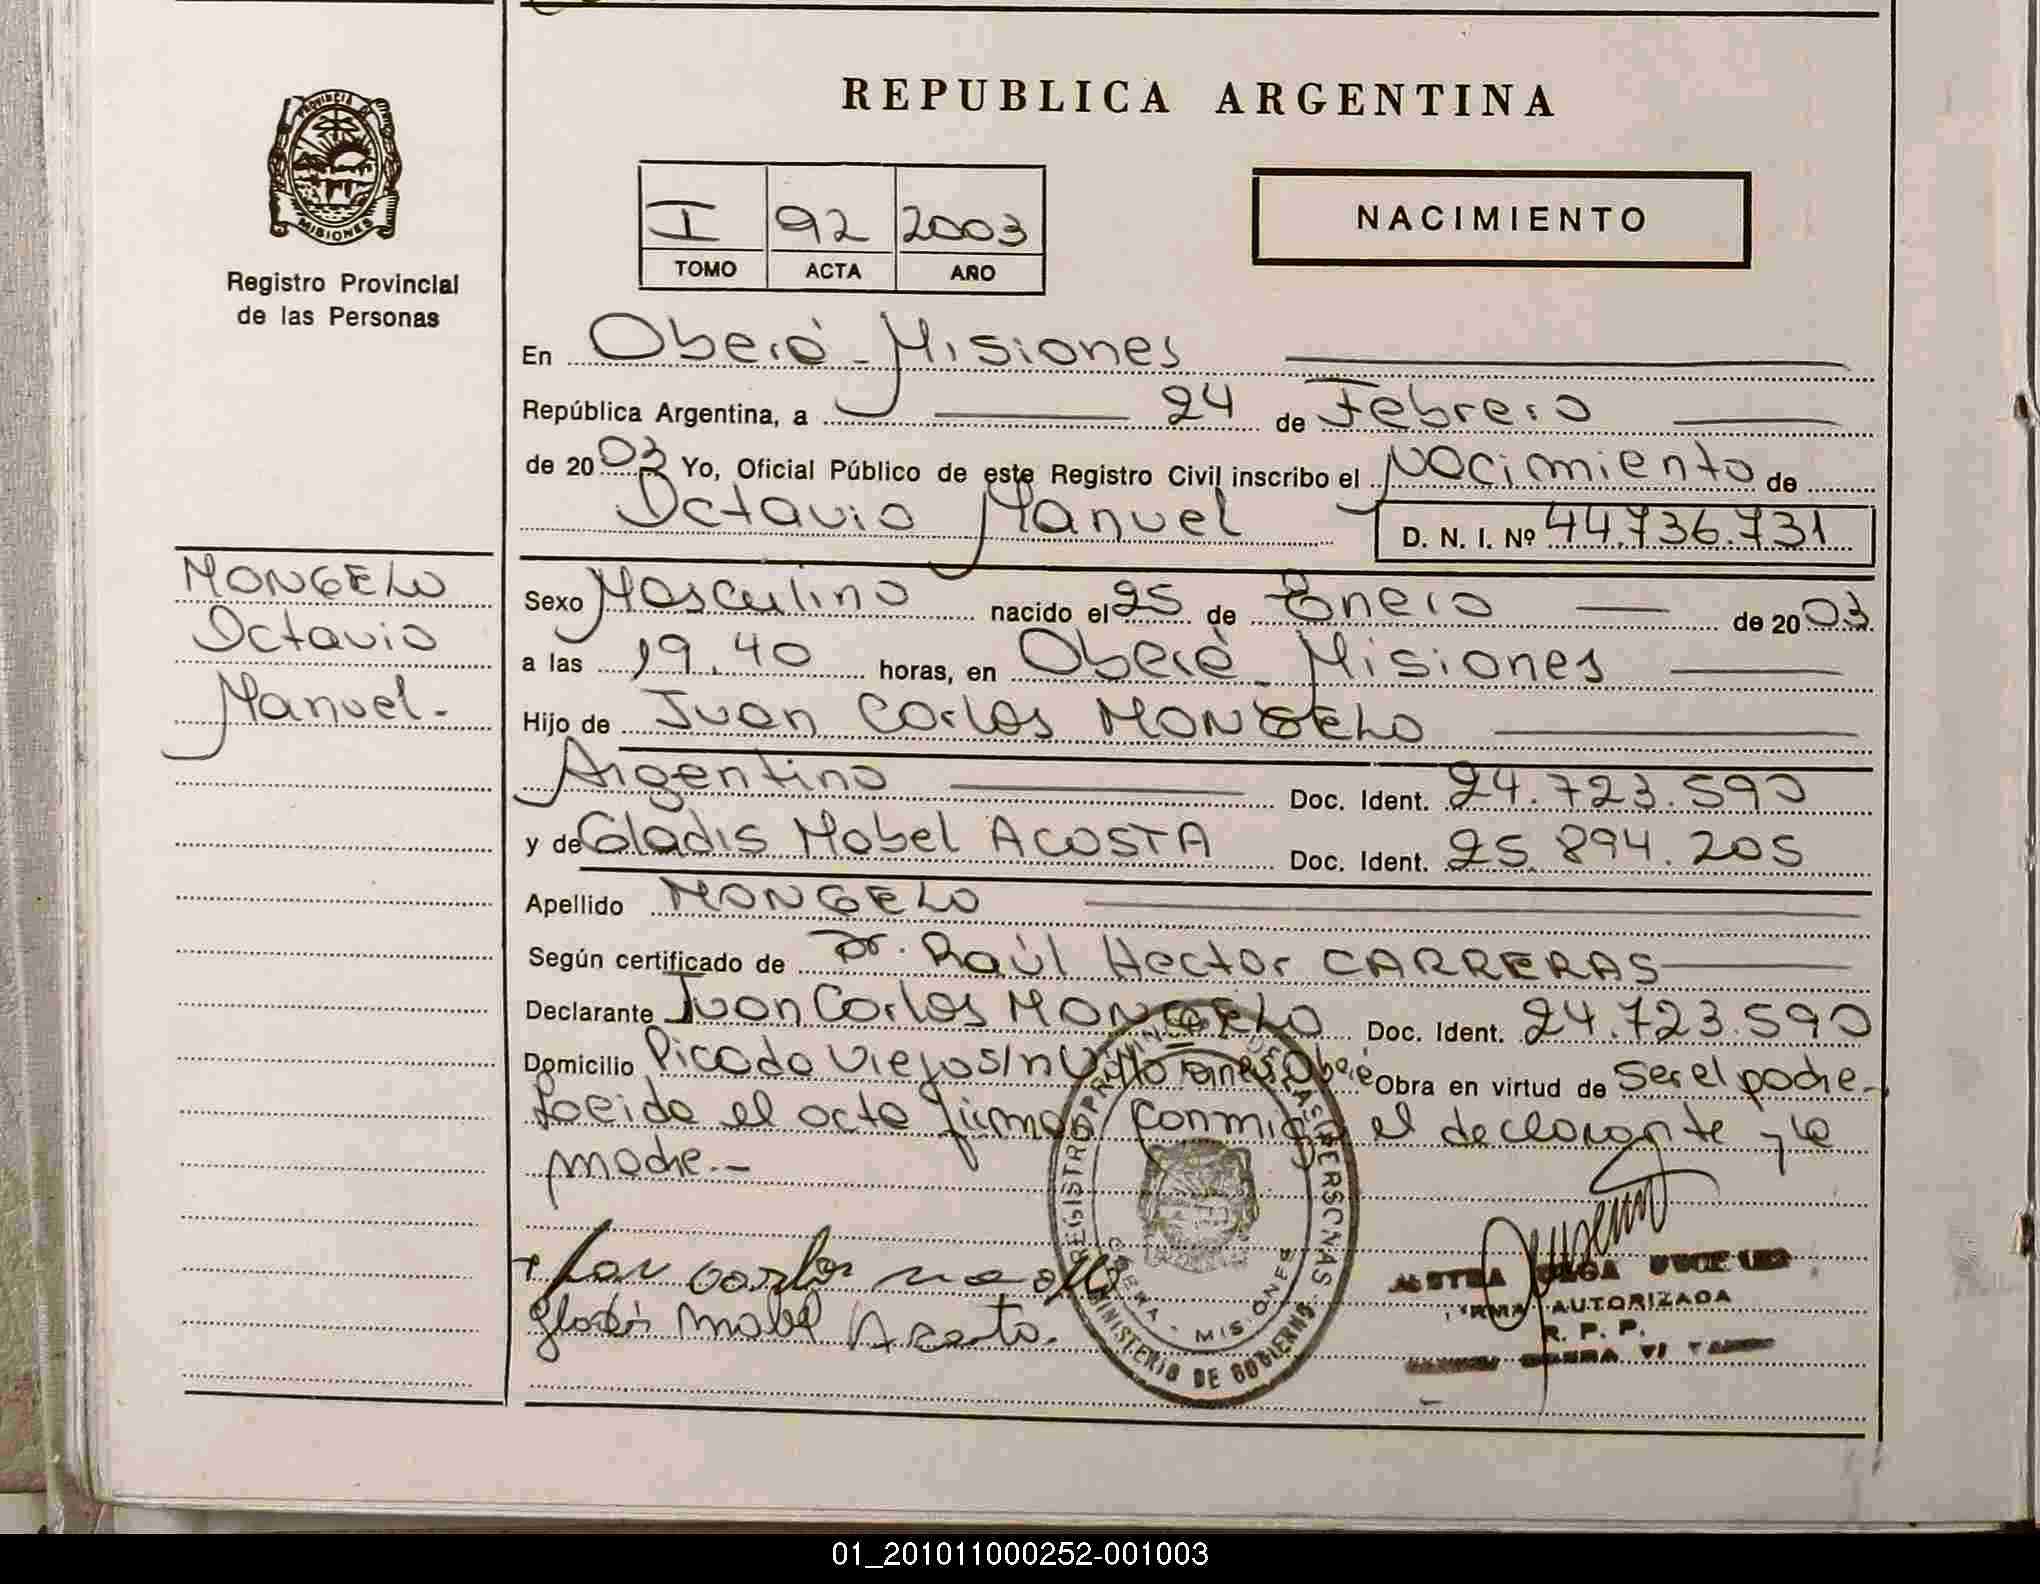 REPUBLICA ARGENTINA
PROVINCIA DE
MISIONES
Registro Provincial
de las Personas
I 92 2003
TOMO ACTA AÑO
NACIMIENTO
En Oberá - Misiones
República Argentina, a 24 de Febrero
de 2003 Yo, Oficial Público de este Registro Civil inscribo el Nacimiento de
Octavio Manuel D. N. I. Nº 44.736.731
MONGELO
Octavio
Manuel.-
Sexo Masculino nacido el 25 de Enero de 2003
a las 19.40 horas, en Oberá - Misiones
Hijo de Juan Carlos MONGELO
Argentino Doc. Ident. 24.723.590
y de Gladis Mabel ACOSTA Doc. Ident. 25.894.205
Apellido MONGELO
Según certificado de Dr. Raúl Hector CARRERAS
Declarante Juan Carlos MONGELO Doc. Ident. 24.723.590
Domicilio Picada Vieja s/n Villa Oberá Obra en virtud de Ser el padre-
Leída el acta firman conmigo el declarante y la
madre.-
REGISTRO PROVINCIAL DE LAS PERSONAS
OBERA - MISIONES
MINISTERIO DE GOBIERNO
Gladis Mabel Acosta.
OLGA
FIRMA AUTORIZADA
R. P. P.
01_201011000252-001003